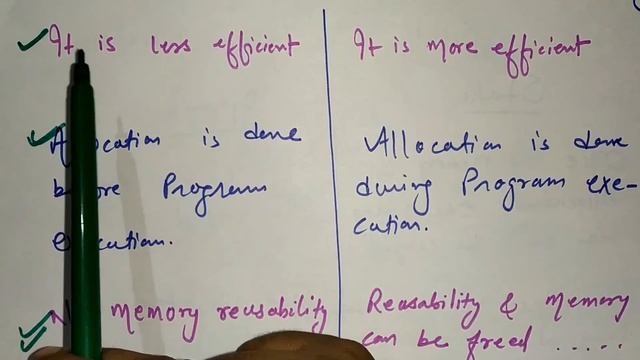 It is less efficient
Allocation is done
before Program
execution.
No memory reusability
It is more efficient
Allocation is done
during Program exe-
cution.
Reusability & memory
can be freed .....